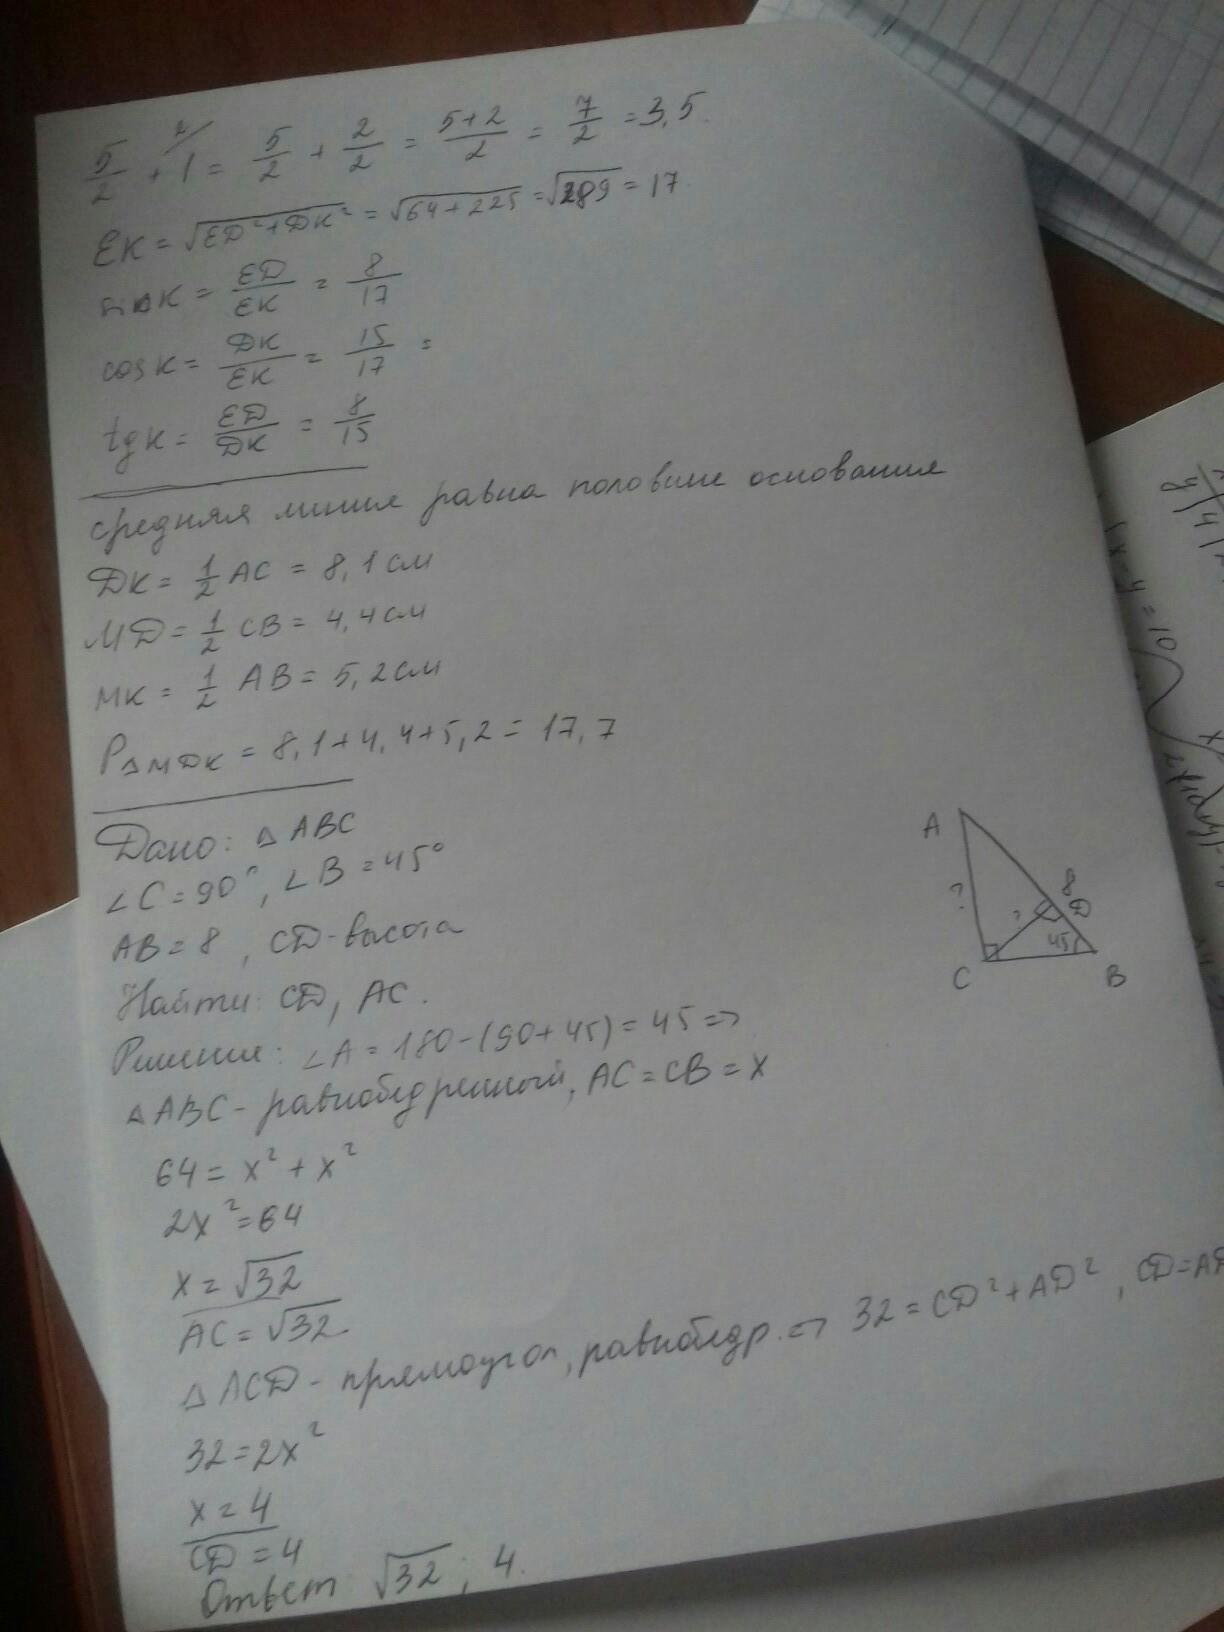 5/2 + 1 = 5/2 + 2/2 = (5+2)/2 = 7/2 = 3,5.
EK = √(ED² + DK²) = √(64 + 225) = √289 = 17
sin K = ED/EK = 8/17
cos K = DK/EK = 15/17 =
tg K = ED/DK = 8/15
средняя линия равна половине основания
DK = 1/2 AC = 8,1 см
MD = 1/2 CB = 4,4 см
MK = 1/2 AB = 5,2 см
P△MDK = 8,1+4,4+5,2 = 17,7
Дано: △ABC
∠C = 90°, ∠B = 45°
AB = 8, CD - высота
Найти: CD, AC.
Решение: ∠A = 180-(90+45) = 45 =>
△ABC - равнобедренный, AC = CB = x
64 = x² + x²
2x² = 64
x = √32
AC = √32
△ACD - прямоугол, равнобедр. => 32 = CD² + AD², CD = AD
32 = 2x²
x = 4
CD = 4
Ответ √32; 4.
A
?
?
8
D
45
C
B
x = y = 10